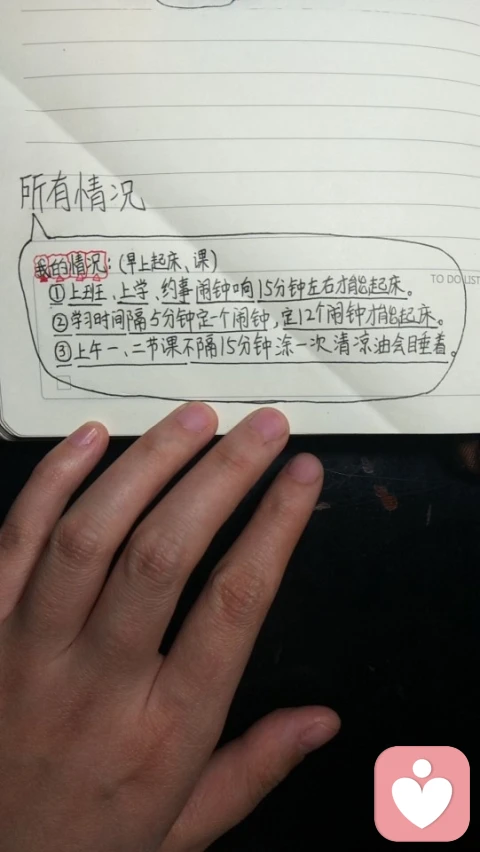 所有情况
我的情况:(早上起床、课)
TO DO LIST
①上班、上学、约事闹钟响15分钟左右才能起床。
②学习时间隔5分钟定一个闹钟,定12个闹钟才能起床。
③上午一、二节课不隔15分钟涂一次清凉油会睡着。